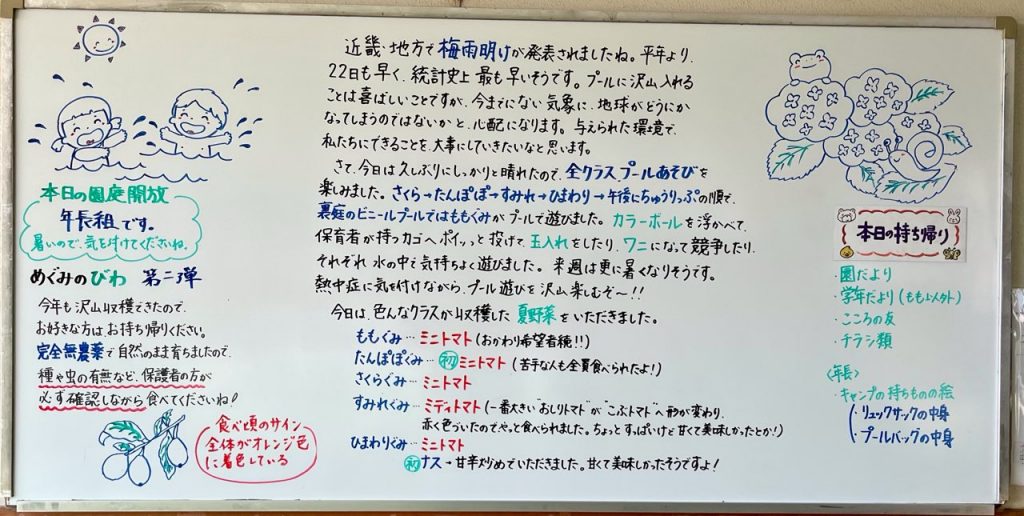 本日の園庭開放
年長組です。
暑いので、気を付けてくださいね。
めぐみのびわ 第二弾
今年も沢山収穫できたので、
お好きな方は、お持ち帰りください。
完全無農薬で自然のまま育ちましたので、
種や虫の有無など、保護者の方が
必ず確認しながら食べてくださいね!
食べ頃のサイン
全体がオレンジ色
に着色している
近畿地方で梅雨明けが発表されましたね。平年より、
22日も早く、統計史上最も早いそうです。プールに沢山入れる
ことは喜ばしいことですが、今までにない気象に、地球がどうにか
なってしまうのではないかと、心配になります。与えられた環境で、
私たちにできることを、大事にしていきたいなと思います。
さて、今日は久しぶりにしっかりと晴れたので、全クラスプールあそびを
楽しみました。さくら→たんぽぽ→すみれ→ひまわり→午後にちゅうりっぷの順で、
裏庭のビニールプールではももぐみがプールで遊びました。カラーボールを浮かべて、
保育者が持つカゴへポイッっと投げて、玉入れをしたり、ワニになって競争したり、
それぞれ水の中で気持ちよく遊びました。来週は更に暑くなりそうです。
熱中症に気を付けながら、プール遊びを沢山楽しむぞ〜!!
今日は、色んなクラスが収穫した夏野菜をいただきました。
ももぐみ…ミニトマト(おかわり希望者続!!)
たんぽぽぐみ…初ミニトマト(苦手な人も全員食べられたよ!)
さくらぐみ…ミニトマト
すみれぐみ…ミディトマト(一番大きい"おしりトマト"が"こぶトマト"へ形が変わり、
赤く色づいたのでやっと食べられました。ちょっとすっぱいけど甘くて美味しかったとか!)
ひまわりぐみ…ミニトマト
初ナス→甘辛炒めでいただきました。甘くて美味しかったそうですよ!
本日の持ち帰り
・園だより
・学年だより(もも以外)
・こころの友
・チラシ類
〈年長〉
・キャンプの持ちものの絵
・リュックサックの中身
・プールバッグの中身